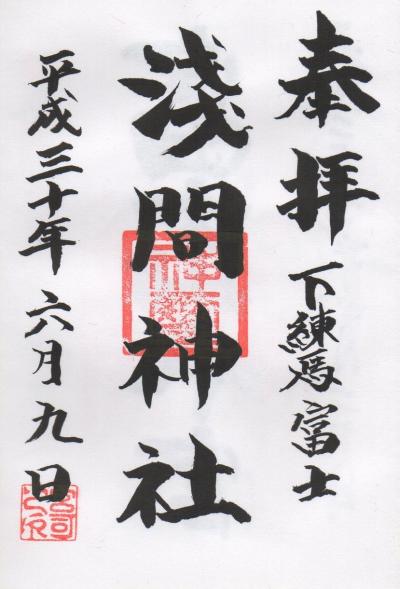 奉拝 下練馬富士
淺間神社
平成三十年 六月九日